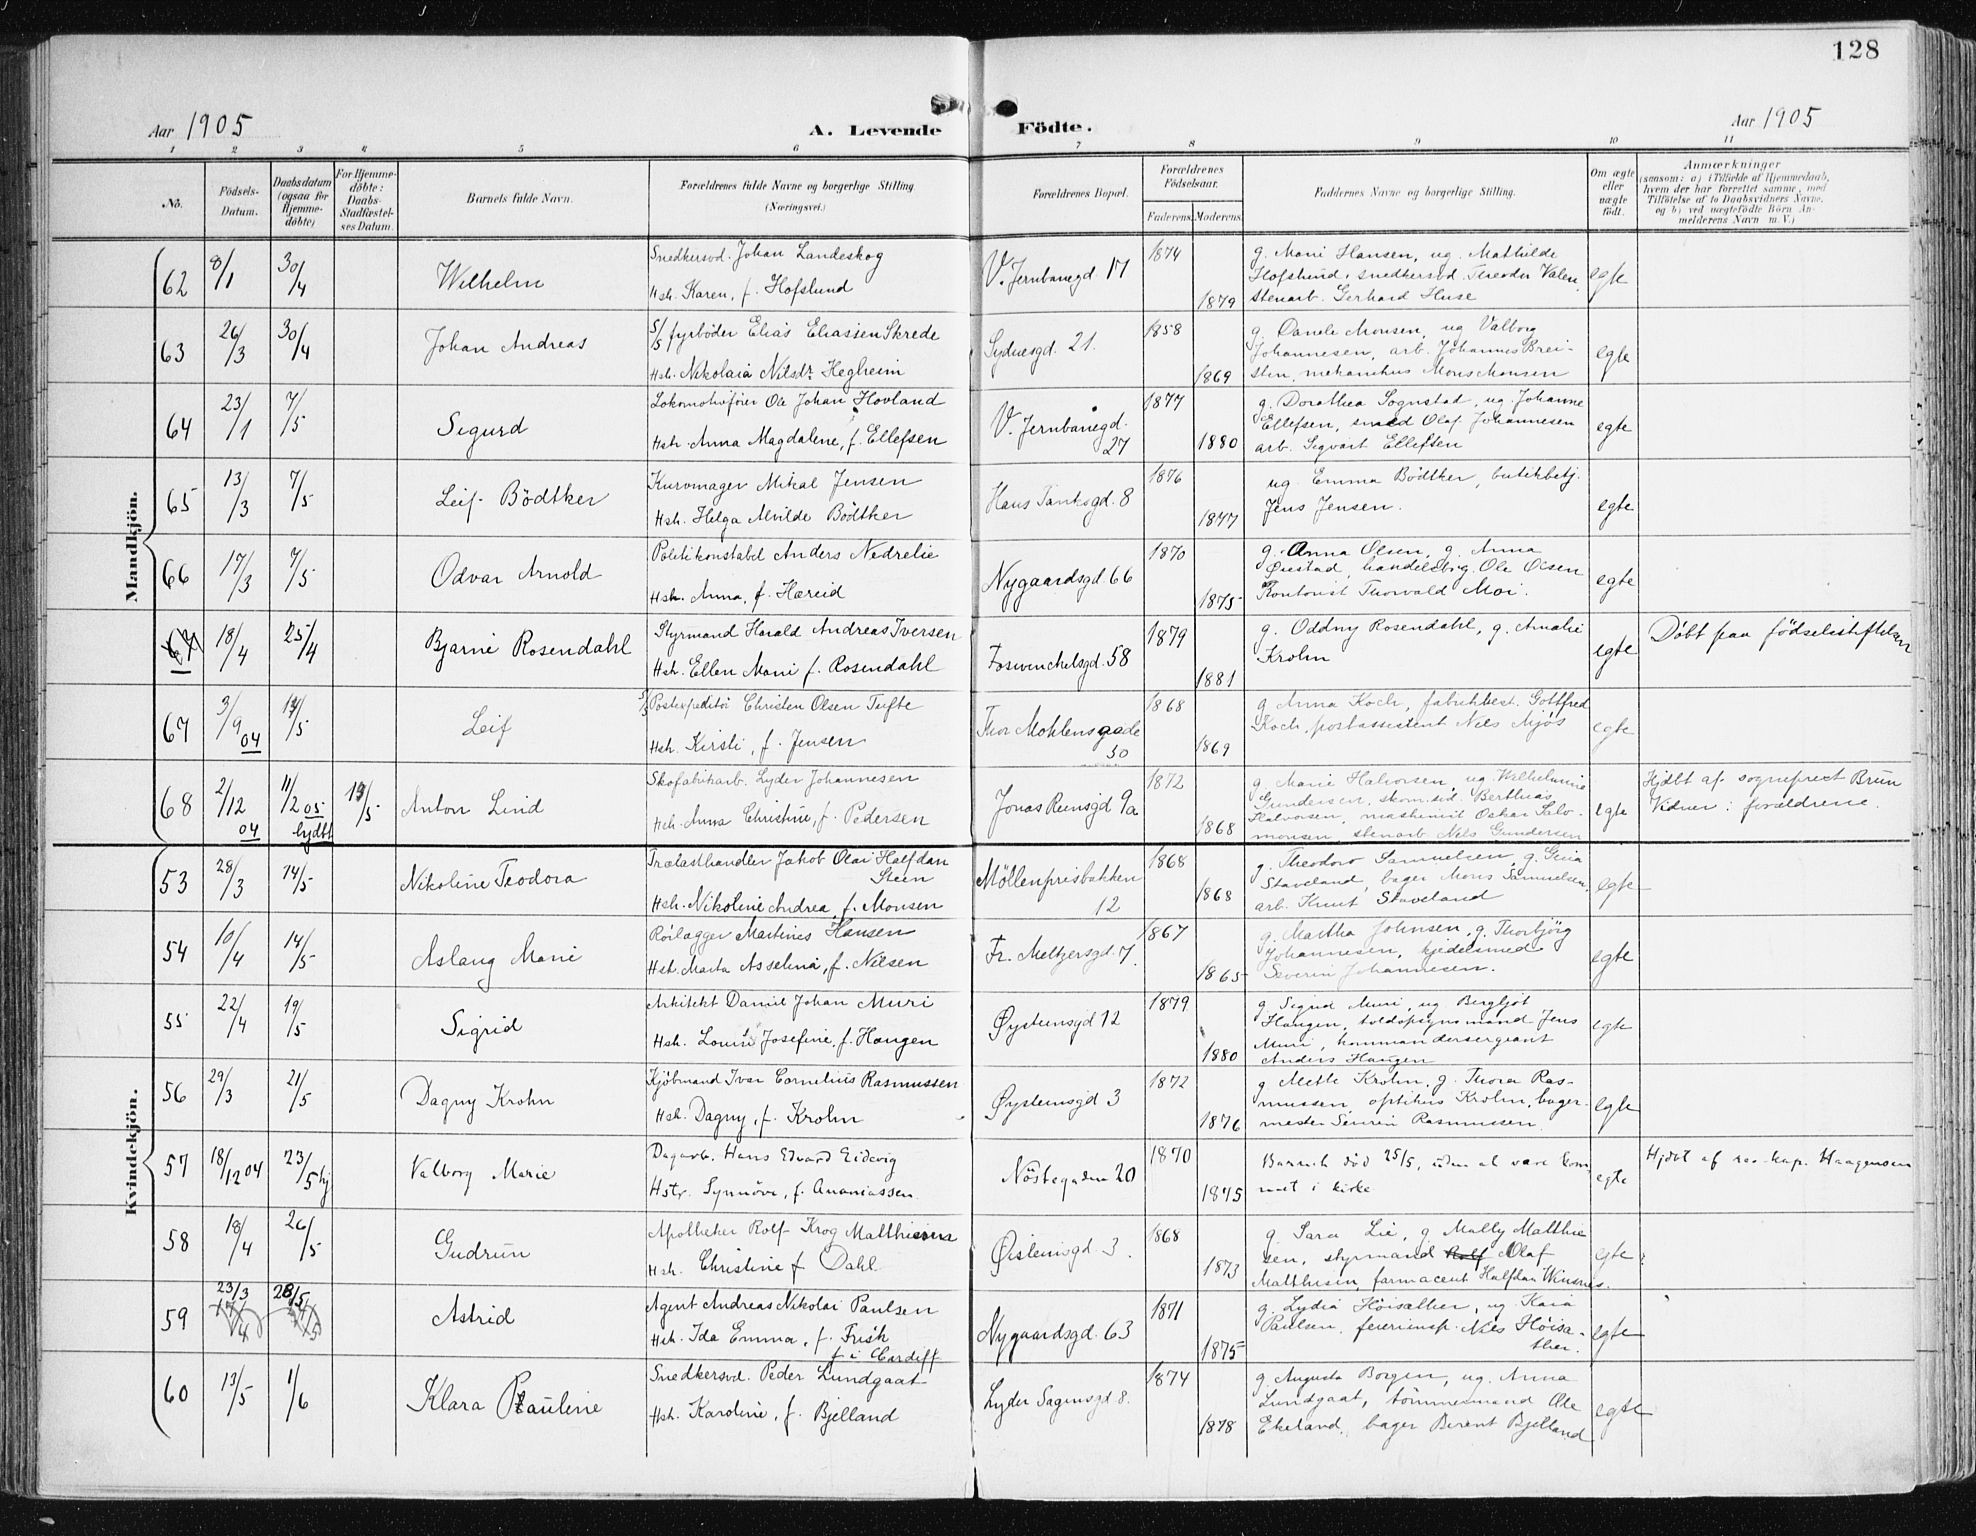 128
Aar 1905
A. Levende Födte.
Aar 1905
1 2 3 4 5 6 7 8 9 10 11
No.
Födsels-Datum.
Daabsdatum (ogsaa for Hjemme-döbte)
For Hjemme-döbte: Daabs-Stadfæstel-ses Datum.
Barnets fulde Navn.
Forældrenes fulde Navne og borgerlige Stilling.
(Næringsvei.)
Forældrenes Bopæl.
Forældrenes Födselsaar.
Faderens. Moderens.
Faddernes Navne og borgerlige Stilling.
Om ægte eller uægte födt.
Anmærkninger
(saasom: a) i Tilfælde af Hjemmedaab,
hvem der har forrettet samme, med
Tilföielse af to Daabsvidners Navne.
og b) ved uægtefödte Börn An-
melderens Navn m. V.)
Mandkjön.
62 8/1 30/4 Wilhelm
Snedkersvd. Johan Landeskog
Hst. Karen, f. Hofslund
V. Jernbanegd. 17
1874 1879
g. Marie Hansen, ug. Mathilde
Hofslund, snedkersvd. Theodor Valen,
stenarb. Gerhard Huse
egte
63 26/3 30/4 Johan Andreas
S/S fyrböder Elias Eliassen Skrede
Hst. Nikolaia Nilsdr. Hegheim
Sydnesgd. 21.
1858 1869
g. Danele Monsen, ug Valborg
Johannesen, arb. Johannes Brei-
sten, mekanikus Mons Monsen
egte
64 23/1 7/5 Sigurd
Lokomotivfører Ole Johan Hovland
Hst. Anna Magdalene, f. Ellefsen
V. Jernbanegd. 27
1877 1880
g. Dorathea Sognstad, ug. Johanne
Ellefsen, smed Olaf Johannesen
arb. Sigvart Ellefsen
egte
65 13/3 7/5 Leif Bödtker
Kurvmager Mikal Jensen
Hst. Helga Alvilde Bödtker
Hans Tanksgd. 8
1876 1877
ug. Emma Bödtker, butikbetj.
Jens Jensen.
egte
66 17/3 7/5 Odvar Arnold
Politikonstabel Anders Nedrelie
Hst. Anna, f. Hæreid
Nygaardsgd. 66
1870 1875
g. Anna Olsen, g. Anna
Øiestad, handelsbg. Ole Olsen
Kontorist Thorvald Moi.
egte
67 18/4 25/4 Bjarne Rosendahl
Styrmand Harald Andreas Iversen
Hst. Ellen Marie f. Rosendahl
Foswinckelsgd. 58
1879 1881
g. Oddny Rosendahl, g. Amalie
Krohn
egte
Döbt paa födselsstiftelsen
67 3/9 04 14/5 Leif
Postexpeditör Christen Olsen Tufte
Hst. Kirsti, f. Jensen
Thor Mohlensgade 50
1868 1869
g Anna Koch, fabrikbest. Gottfred
Koch, postassistent Nils Mjøs
egte
68 2/12 04 11/2 05 hjdbt 14/5 Anton Lind
Skofabrikarb. Lyder Johannesen
Hst. Anna Christine, f. Pedersen
Jonas Reinsgd 9a
1872 1868
g. Marie Halvorsen, ug. Wilhelmine
Gundersen, skom.sd. Berthus
Halvorsen, maskinist Oskar Salo-
monsen stenarb Nils Gundersen
egte
Hjdbt af sogneprest Brun
Vidner: forældrene.
Kvindekjön.
53 28/3 14/5 Nikoline Teodora
Trælasthandler Jakob Olai Halfdan
Steen
Hst. Nikoline Andrea, f. Monsen
Möllenprisbakken 12
1868 1868
g. Theodora Samuelsen, g. Gina
Staveland, bager Mons Samuelsen,
arb. Knut Staveland
egte
54 10/4 14/5 Aslaug Marie
Rörlægger Martines Hansen
Hst. Marta Asseline, f. Nilsen
Fr. Meltzersgd. 7.
1867 1865
g. Martha Johnsen, g. Thorbjörg
Johannesen, kjedelsmed
Severin Johannesen.
egte
55 22/4 19/5 Sigrid
Arkitekt Daniel Johan Muri
Hst. Louise Josefine, f. Haugen
Øysteinsgd 12
1879 1880
g Sigrid Muri, ug. Bergljot
Haugen, toldopsynsmand Jens
Muri, kommandersergeant
Anders Haugen
egte
56 29/3 21/5 Dagny Krohn
Kjöbmand Ivar Cornelius Rasmussen
Hst. Dagny, f. Krohn
Øysteinsgd 3
1872 1876
g Mette Krohn, g. Thora Ras-
mussen, optikus Krohn, bager-
mester Severin Rasmussen.
egte
57 18/12 04 23/5 hj Valborg Marie
Dagarb. Hans Edvard Eidevig
Hstr. Synnöve, f. Ananiassen
Nöstegaden 20
1870 1875
Barnet död 25/5, uden at være kom
met i kirke
egte
Hjdbt af res. kap. Haagensen
58 18/4 26/5 Gudrun
Apotheker Rolf Krog Matthiesen
Hst. Christine f Dahl
Øisteinsgd. 3.
1868 1873
g. Sara Lie, g Mally Matthie
sen, styrmand Rolf Olaf
Matthisen, farmaceut Halfdan Winsnes.
egte
59 23/3 17/4 28/5 Astrid
Agent Andreas Nikolai Paulsen
Hst. Ida Emma, f. Frish
f i Cardiff
Nygaardsgd. 63
1871 1875
g. Lydia Höisæther, ug. Kaia
Paulsen, feierinsp. Nils Höisæ-
ther.
egte
60 13/5 1/6 Klara Pauline
Snedkersvd. Peder Lundgaat
Hst. Karoline, f. Bjelland
Lyder Sagensgd 8.
1874 1878
g. Augusta Borgen, ug. Anna
Lundgaat, tömmermand Ole
Ekeland, bager Berent Bjelland
egte